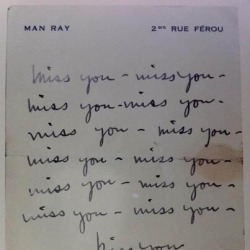 MAN RAY 2BIS RUE FÉROU
miss you - miss you -
miss you - miss you -
miss you - miss you -
miss you - miss you -
miss you - miss you -
miss you - miss you -
you